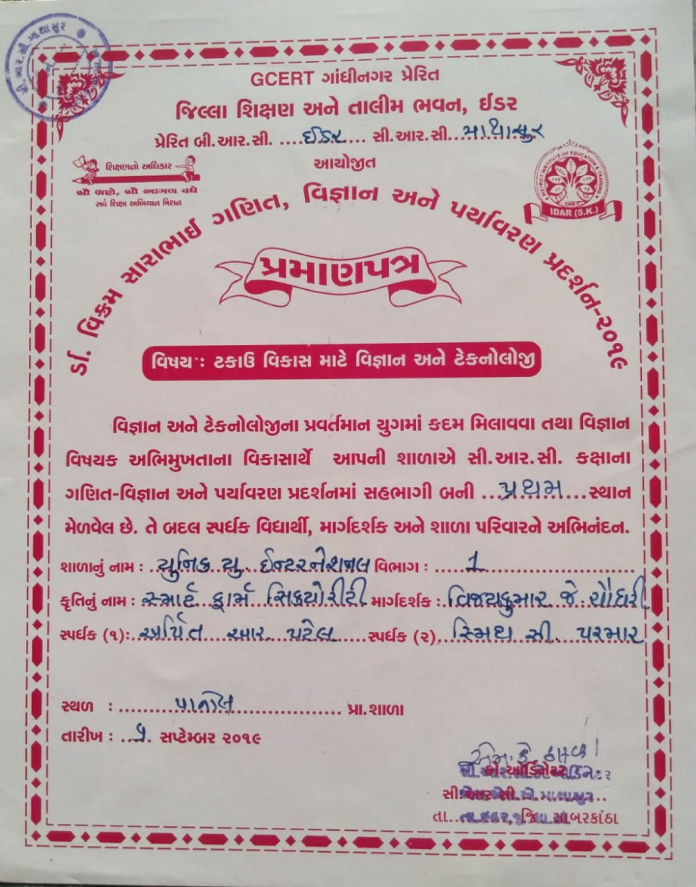 GCERT ગાંધીનગર પ્રેરિત
જિલ્લા શિક્ષણ અને તાલીમ ભવન, ઈડર
પ્રેરિત બી.આર.સી. ....ઈડર.... સી.આર.સી....માથાસુર
આયોજીત
શિક્ષણનો અધિકાર
સૌ ભણે, સૌ આગળ વધે
સર્વ શિક્ષા અભિયાન મિશન
IDAR (S.K.)
ર્ડા. વિક્રમ સારાભાઈ ગણિત, વિજ્ઞાન અને પર્યાવરણ પ્રદર્શન-૨૦૧૯
પ્રમાણપત્ર
વિષય : ટકાઉ વિકાસ માટે વિજ્ઞાન અને ટેકનોલોજી
વિજ્ઞાન અને ટેકનોલોજીના પ્રવર્તમાન યુગમાં કદમ મિલાવવા તથા વિજ્ઞાન
વિષયક અભિમુખતાના વિકાસાર્થે આપની શાળાએ સી.આર.સી. કક્ષાના
ગણિત-વિજ્ઞાન અને પર્યાવરણ પ્રદર્શનમાં સહભાગી બની ...પ્રથમ....સ્થાન
મેળવેલ છે. તે બદલ સ્પર્ધક વિદ્યાર્થી, માર્ગદર્શક અને શાળા પરિવારને અભિનંદન.
શાળાનું નામ : યુનિક યુ. ઈન્ટરનેશનલ વિભાગ : ....1....
કૃતિનું નામ : સ્માર્ટ ફાર્મ સિક્યોરીટી માર્ગદર્શક : વિજયકુમાર જે ચૌધરી
સ્પર્ધક (૧): અર્પિત આર પટેલ સ્પર્ધક (૨) સ્મિથ સી. પરમાર
સ્થળ : .... પ્રા.શાળા
તારીખ : ... સપ્ટેમ્બર ૨૦૧૯
કો.ઓર્ડિનેટર
સી.આર.સી. માથાસુર
તા. ઈડર, જિ. સાબરકાંઠા